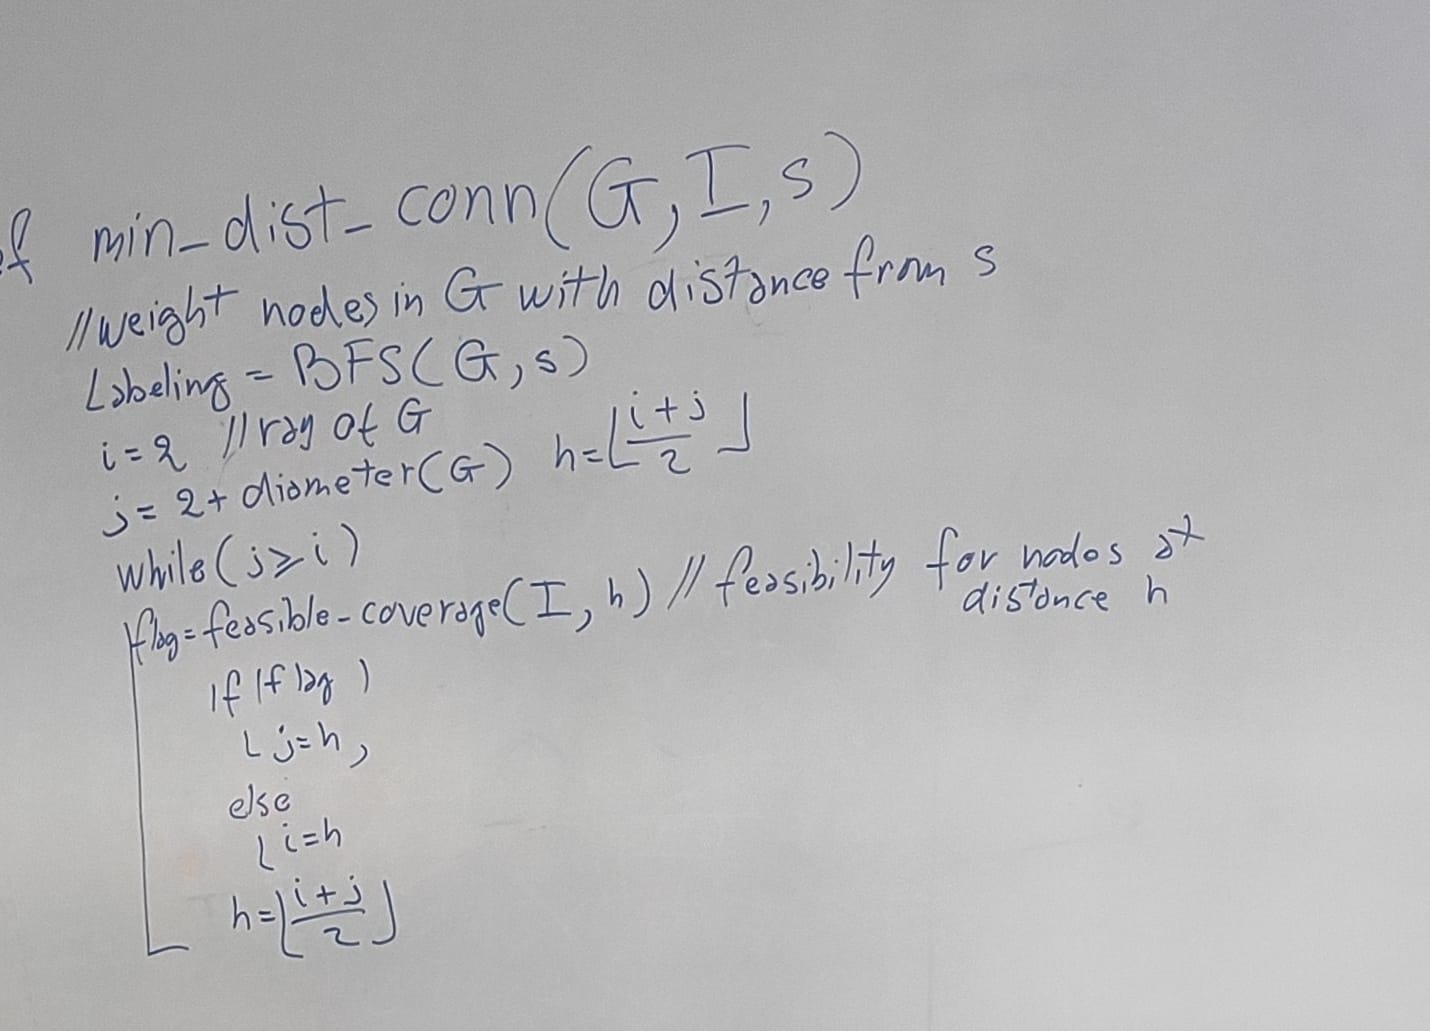 ef min_dist_conn(G,I,s)
//weight nodes in G with distance from s
Labeling = BFS(G,s)
i=2 //ray of G
j=2+diameter(G) h=⌊(i+j)/2⌋
while(j≥i)
flag=feasible-coverage(I,h) // feasibility for nodes at
distance h
If(flag)
j=h,
else
i=h
h=⌊(i+j)/2⌋